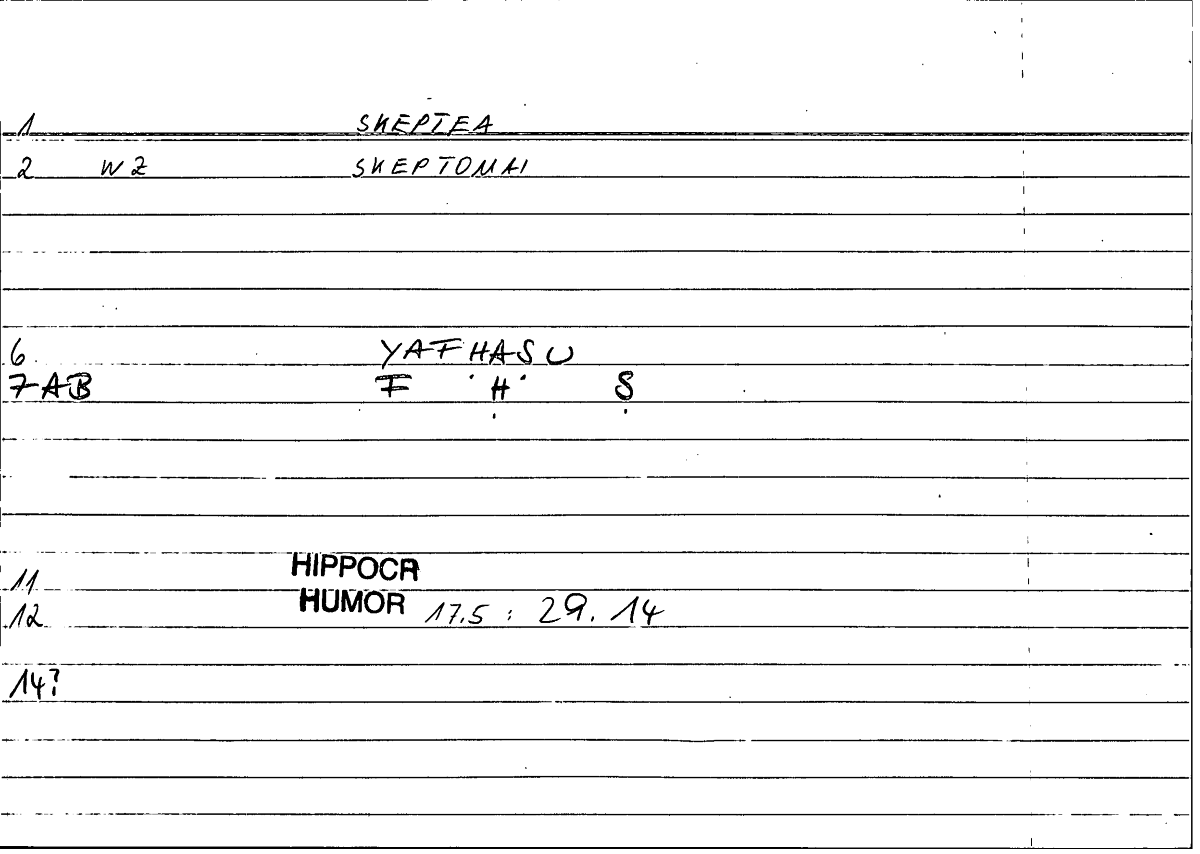 1 SKEPTEA
2 WZ SKEPTOMAI
6 YAFHASU
7AB F H S
11 HIPPOCR
12 HUMOR 17.5 : 29.14
14?